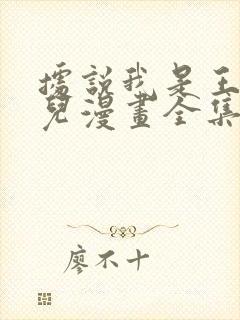 據說我是王
兒漫畫全集
廖不十